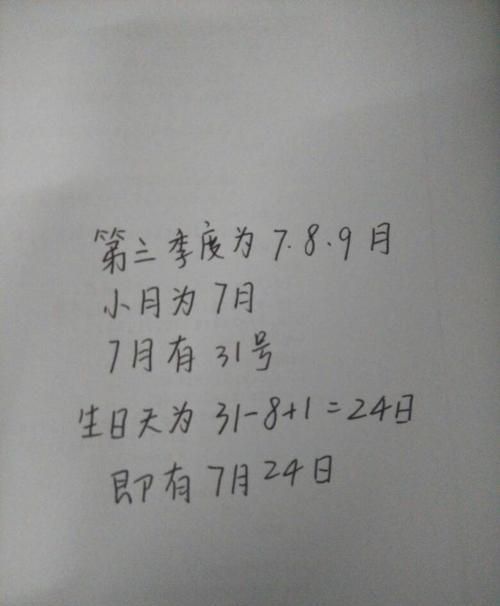 第三季度为7.8.9月
小月为7月
7月有31号
生日天为31-8+1=24日
即有7月24日